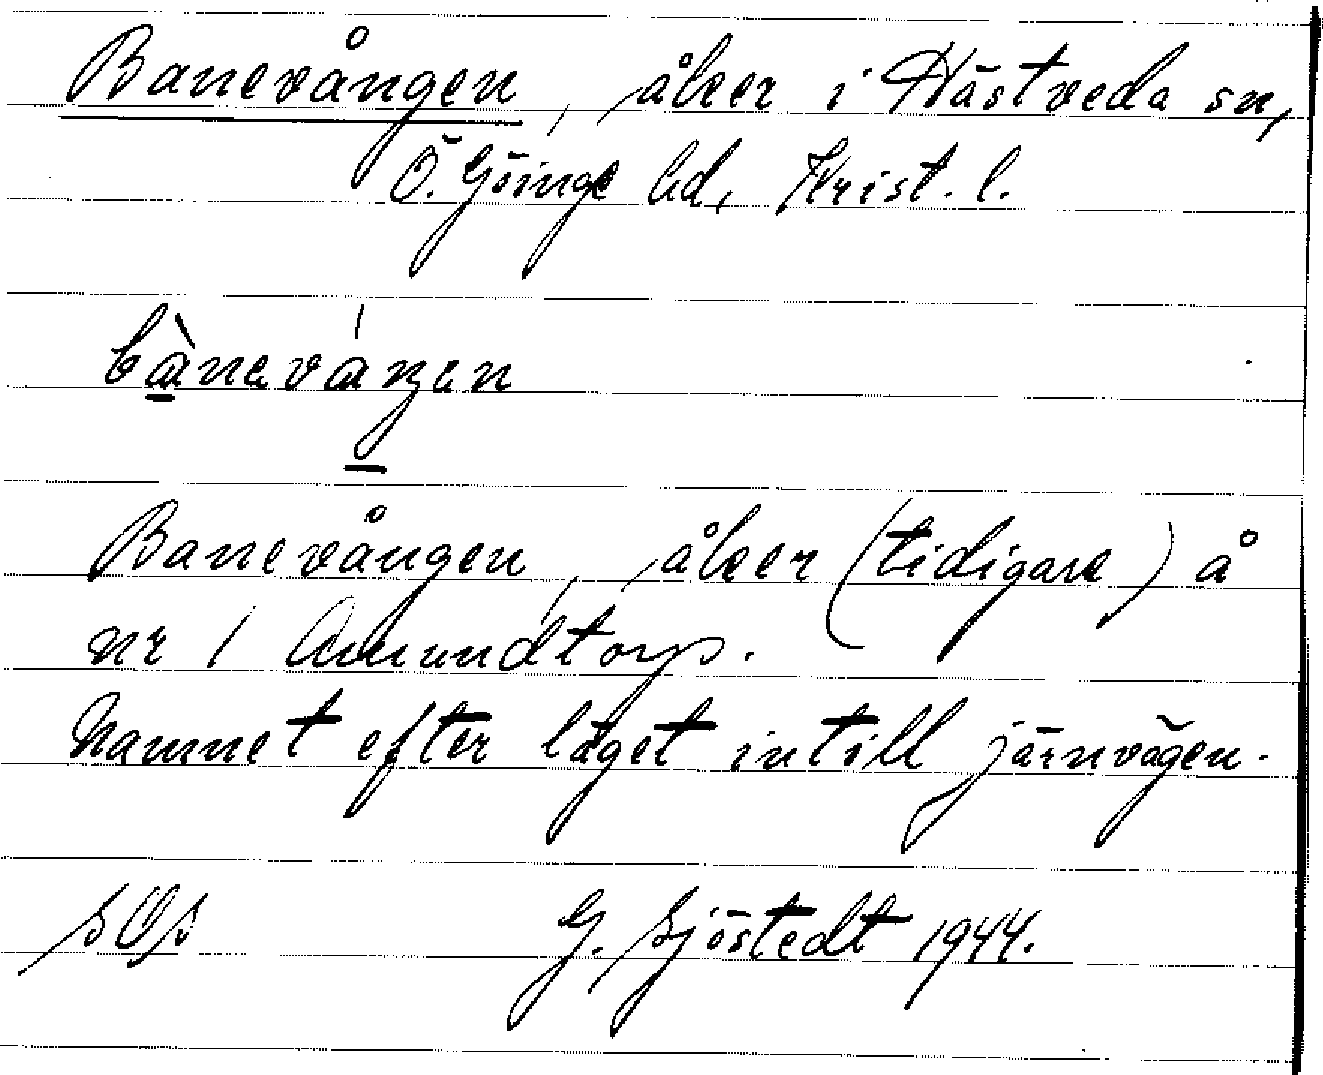 Banevången, åker i Hästveda sn,
Ö. Göinge hd, Krist. l.
bàneváŋen
Banevången, åker (tidigare) å
nr 1 Amundtorp.
Namnet efter läget intill järnvägen.
G. Sjöstedt 1944.